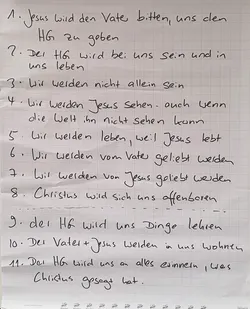 1. Jesus wird den Vater bitten, uns den
HG zu geben
2. Der HG wird bei uns sein und in
uns leben
3. Wir werden nicht allein sein
4. Wir werden Jesus sehen - auch wenn
die Welt ihn nicht sehen kann
5. Wir werden leben, weil Jesus lebt
6. Wir werden vom Vater geliebt werden
7. Wir werden von Jesus geliebt werden
8. Christus wird sich uns offenbaren
9. der HG wird uns Dinge lehren
10. Der Vater + Jesus werden in uns wohnen
11. Der HG wird uns an alles erinnern, was
Christus gesagt hat.